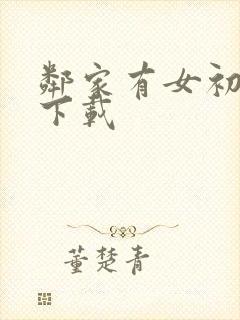 鄰家有女初
下載
董楚青